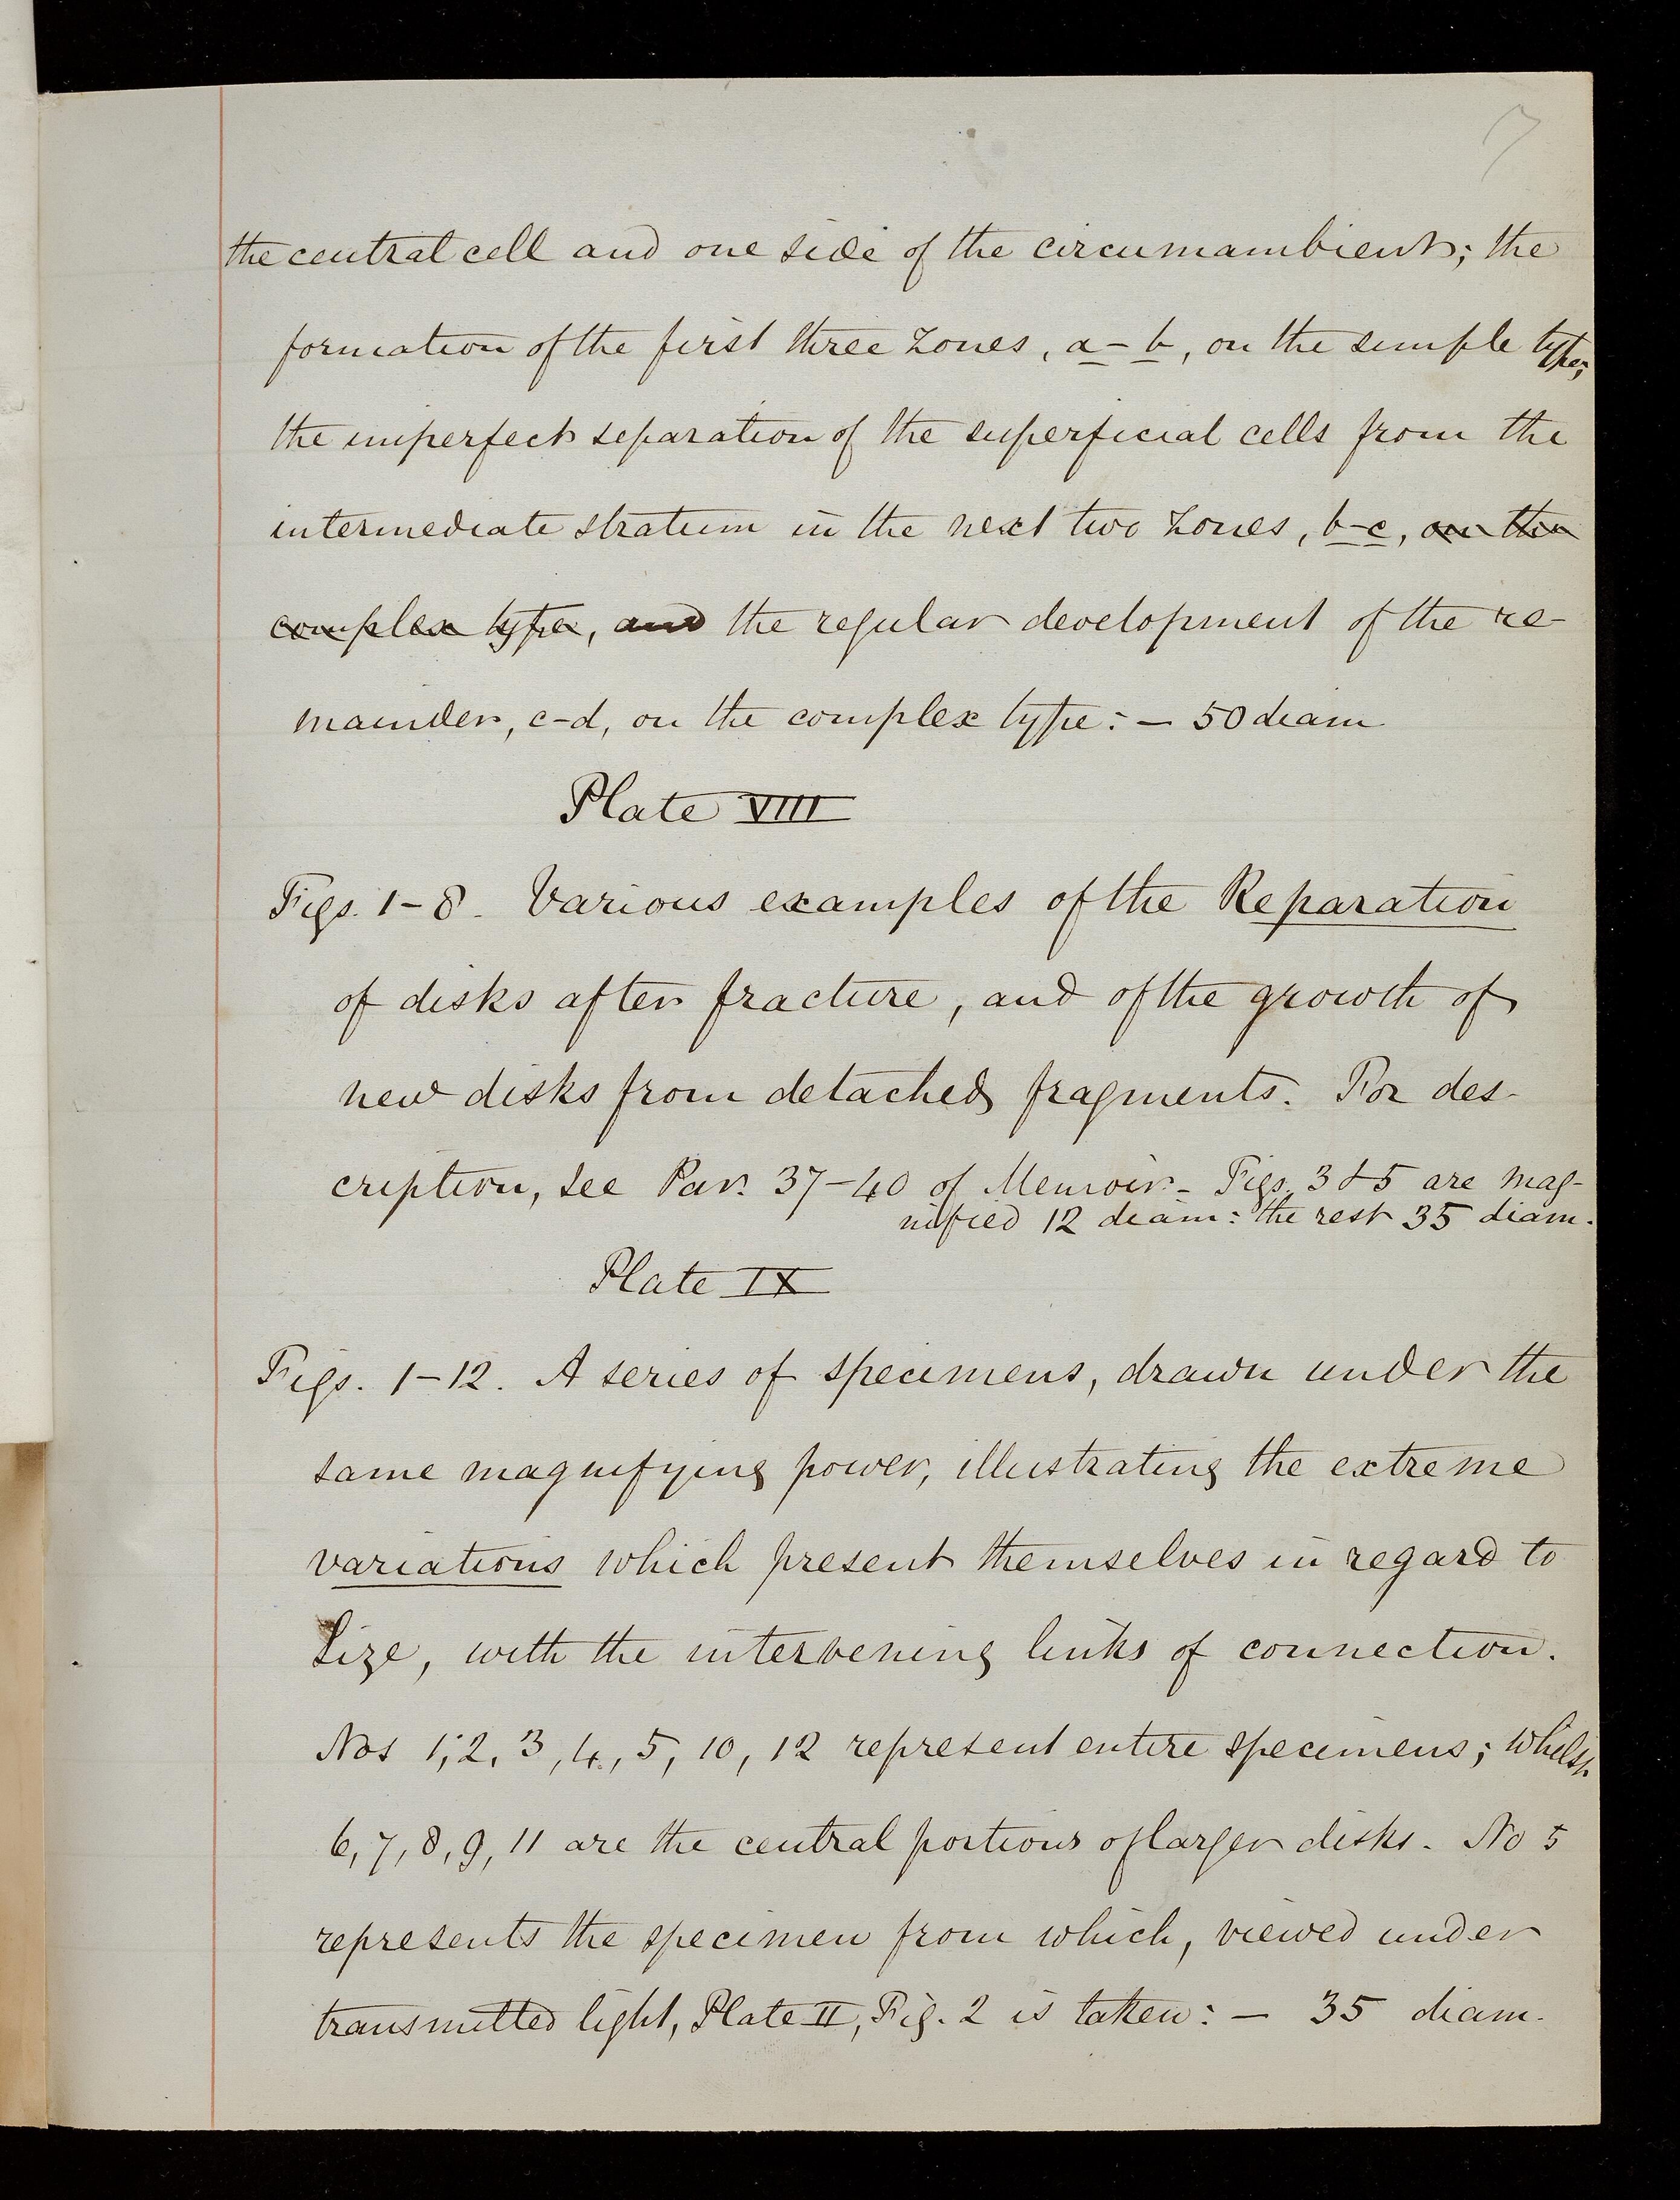 7
the central cell and one side of the circumambient; the
formation of the first three zones, a-b, on the simple type;
the imperfect separation of the superficial cells from the
intermediate stratum in the next two zones, b-c, on the
complex type, and the regular development of the re-
mainder, c-d, on the complex type:- 50 diam
Plate VIII
Figs. 1-8. Various examples of the Reparation
of disks after fracture, and of the growth of
new disks from detached fragments. For des-
cription, see Par. 37-40 of Memoir - Figs. 3 & 5 are mag-
nified 12 diam: the rest 35 diam.
Plate IX
Figs. 1-12. A series of specimens, drawn under the
same magnifying power, illustrating the extreme
variations which present themselves in regard to
size, with the intervening links of connection.
Nos 1, 2, 3, 4, 5, 10, 12 represent entire specimens; whilst
6, 7, 8, 9, 11 are the central portions of larger disks. No 5
represents the specimen from which, viewed under
transmitted light, Plate II, Fig. 2 is taken:- 35 diam.